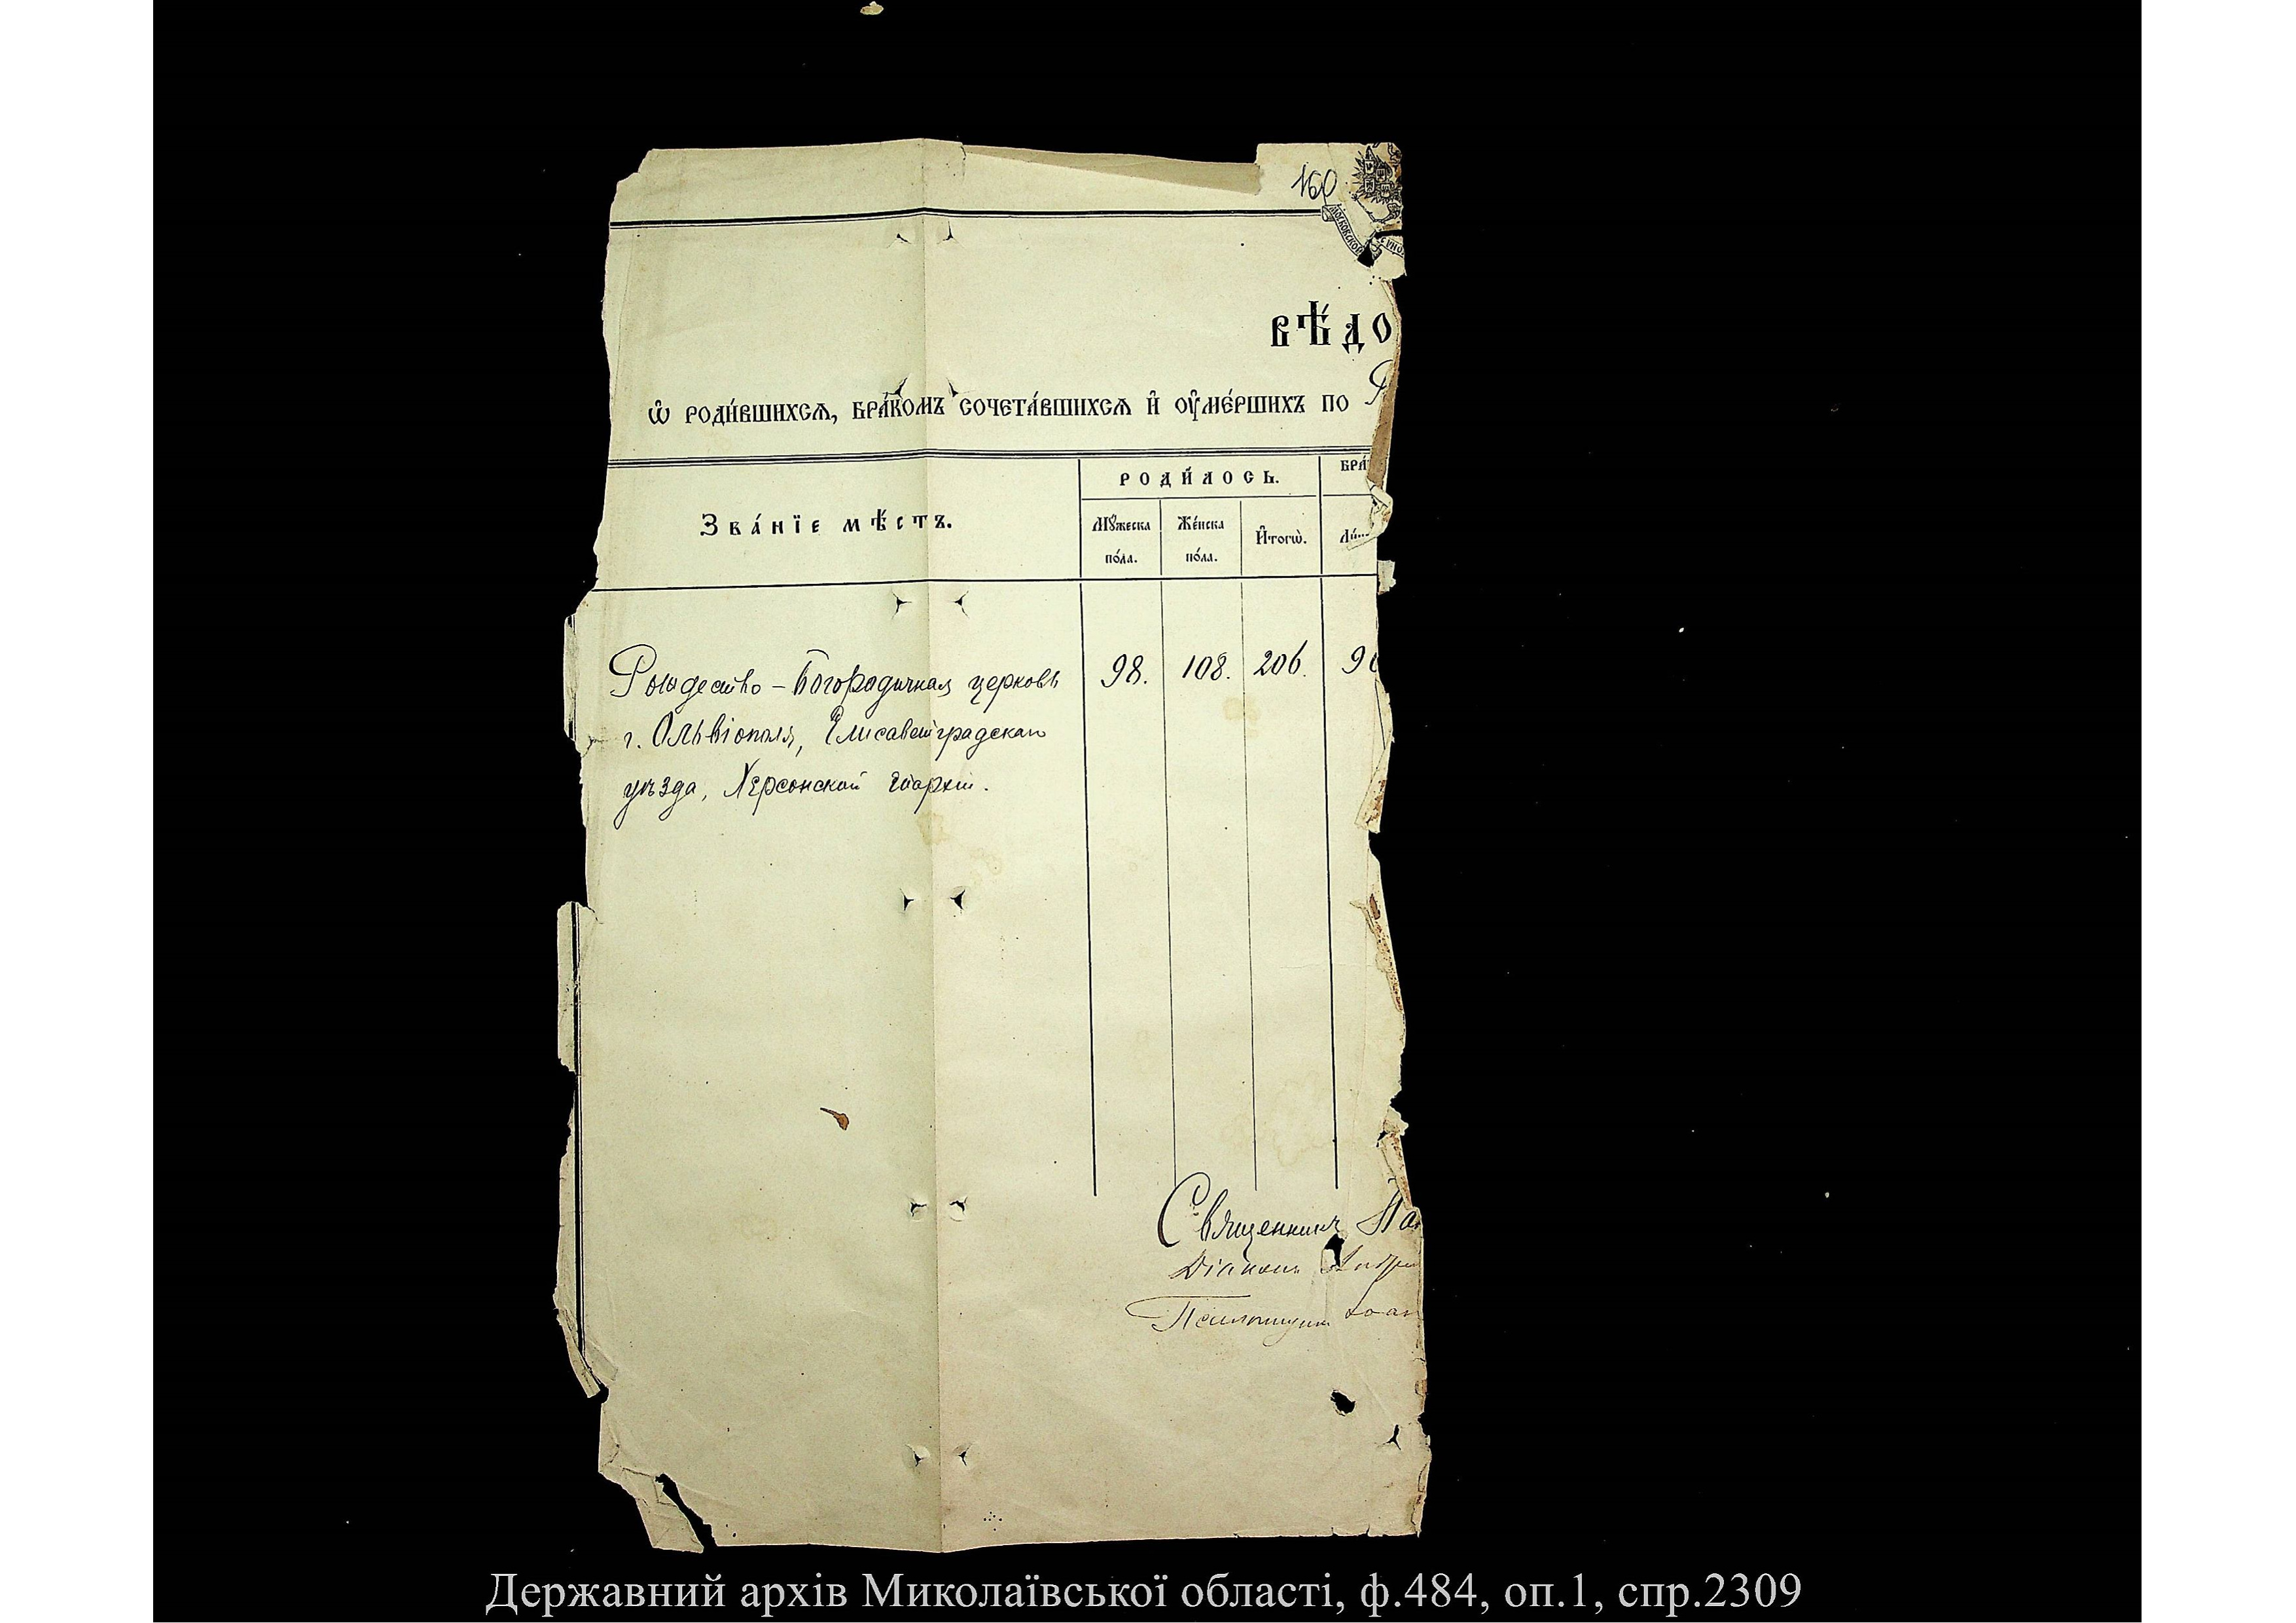 160
МОСКОВСКОЙ
ВѢ́ДО
Ѡ҆ РОДИ́ВШИХСѦ, БРА́КОМЪ СОЧЕТА́ВШИХСѦ И҆ ОУ҆МЕ́РШИХЪ ПО Р
Зва́нїе мѣ́стъ.
РОДИ́ЛОСЬ.
БРА́
Мꙋ́жеска по́ла.
Же́нска по́ла.
И҆тогѡ̀.
Рождество-Богородичная церковь
98. 108. 206. 9
г. Ольвіополя, Елисаветградскаго
уѣзда, Херсонской епархіи.
Священникъ Па
Діаконъ Андре
Псаломщикъ Іоан
Державний архів Миколаївської області, ф.484, оп.1, спр.2309